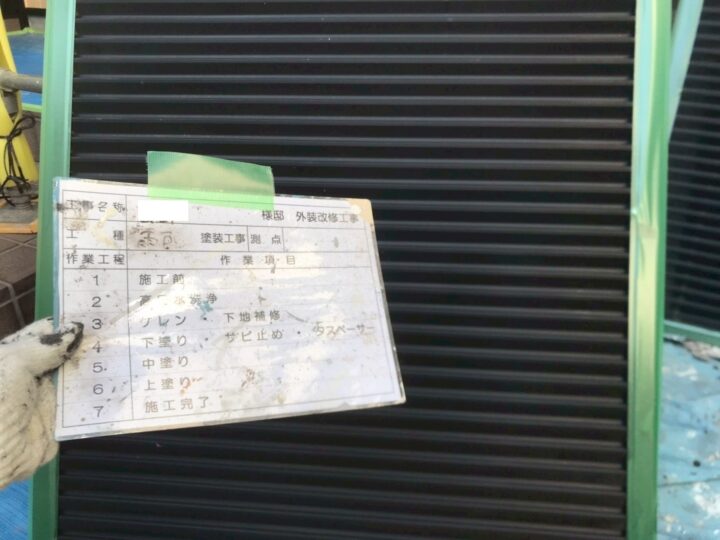 工事名称 様邸 外装改修工事
工種 雨戸 塗装工事 測点
作業工程 作業項目
1 施工前
2 高圧水洗浄
3 ケレン・下地補修
4 下塗り・サビ止め・タスペーサー
5 中塗り
6 上塗り
7 施工完了